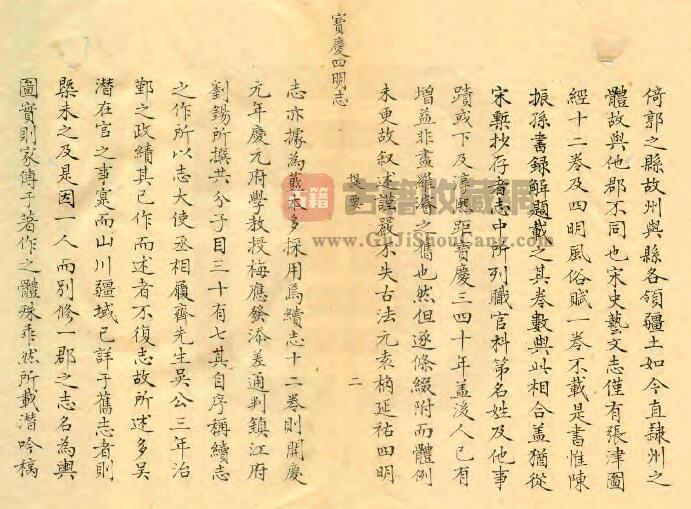 倚郭之縣故州與縣各領疆土如今直隸州之
體故與他郡不同也宋史藝文志僅有張津圖
經十二卷及四明風俗賦一卷不載是書惟陳
振孫書錄解題載之其卷數與此相合蓋猶從
宋槧抄存者志中所列職官科第名姓及他事
蹟或下及淳熙距寶慶三四十年蓋後人已有
增益非盡羅濬之舊也然但逐條綴附而體例
未更故叙述謹嚴不失古法元袁桷延祐四明
寶慶四明志
提要
二
志亦據為藍本多採用焉續志十二卷則開慶
元年慶元府學教授梅應發添差通判鎮江府
劉錫所撰共分子目三十有七其自序稱續志
之作所以志大使丞相履齋先生吳公三年治
鄞之政績其已作而述者不復志故所述多吳
潛在官之事實而山川疆域已詳于舊志者則
槩未之及是因一人而別修一郡之志名為輿
圖實則家傳于著作之體殊乖然所載潛吟稿
古籍
古籍收藏網
www.GuJiShouCang.com